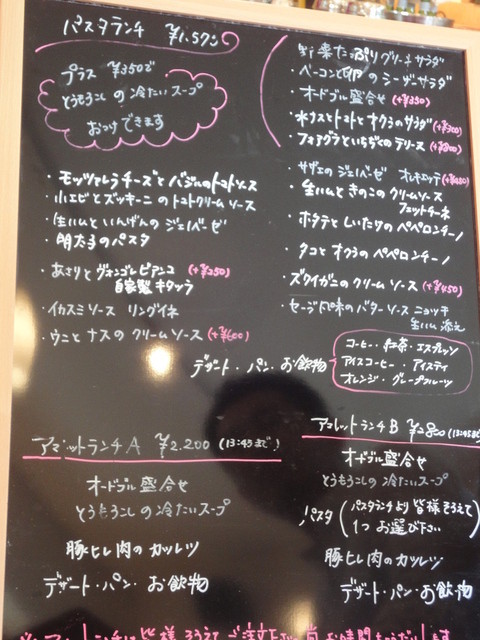 パスタランチ ¥1.570
プラス ¥350で
とうもろこしの冷たいスープ
おつけできます
野菜たっぷりグリーンサラダ
・ベーコンと卵のシーザーサラダ
・オードブル盛合せ (+¥350)
・水タコとトマトとオクラのサラダ (+¥300)
・フォアグラといちぢくのテリーヌ (+¥800)
・モッツァレラチーズとバジルのトマトソース
・小エビとズッキーニのトマトクリームソース
・生ハムといんげんのジェノベーゼ
・明太子のパスタ
・あさりとヴォンゴレビアンコ (+¥250)
自家製キタッラ
・イカスミソース リングイネ
・ウニとナスのクリームソース (+¥600)
サザエのジェノベーゼ オレキエッテ
・生ハムときのこのクリームソース
フェットチーネ
・ホタテとしいたけのペペロンチーノ
・タコとオクラのペペロンチーノ
・ズワイガニのクリームソース (+¥450)
・セージ風味のバターソース ニョッキ
生ハム添え
デザート・パン・お飲物
コーヒー・紅茶・エスプレッソ
アイスコーヒー・アイスティ
オレンジ・グレープフルーツ
アマレットランチA ¥2.200 (13:45まで)
オードブル盛合せ
とうもろこしの冷たいスープ
豚ヒレ肉のカツレツ
デザート・パン・お飲物
アマレットランチB ¥2.800 (13:45まで)
オードブル盛合せ
とうもろこしの冷たいスープ
パスタ (パスタランチより皆様そろえて
1つお選び下さい)
豚ヒレ肉のカツレツ
デザート・パン・お飲物